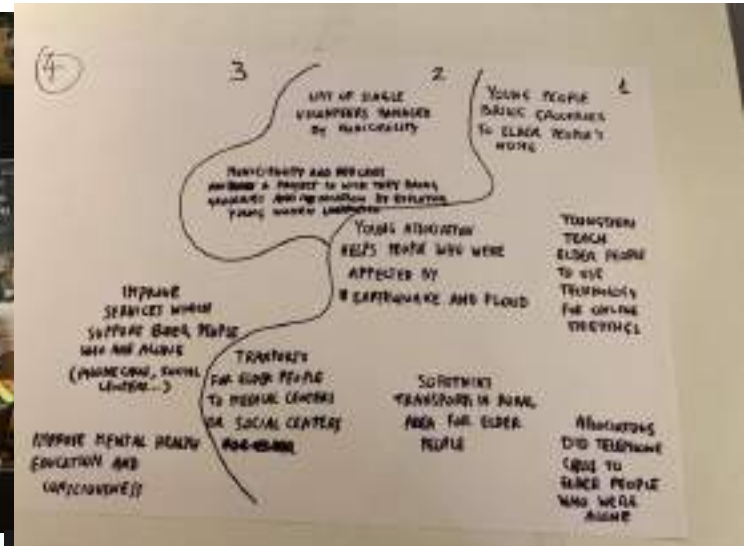 4
3
2
1
LIST OF SINGLE
VOLUNTEERS MANAGED
BY MUNICIPALITY
YOUNG PEOPLE
BRING GROCERIES
TO ELDER PEOPLE'S
HOME
MUNICIPALITY AND
A PROJECT IN WICH THEY BRING
GROCERIES AND
YOUNG
YOUNG ASSOCIATION
HELPS PEOPLE WHO WERE
AFFECTED BY
EARTHQUAKE AND FLOOD
YOUNGSTERS
TEACH
ELDER PEOPLE
TO USE
TECHNOLOGY
FOR ONLINE
MEETINGS
IMPROVE
SERVICES WHICH
SUPPORT ELDER PEOPLE
WHO ARE ALONE
(PHONE CALLS, SOCIAL
CENTERS...)
TRANSPORTS
FOR ELDER PEOPLE
TO MEDICAL CENTERS
OR SOCIAL CENTERS
TRANSPORTS IN RURAL
AREA FOR ELDER
PEOPLE
IMPROVE MENTAL HEALTH
EDUCATION AND
CONSCIOUSNESS
ASSOCIATIONS
DID TELEPHONE
CALLS TO
ELDER PEOPLE
WHO WERE
ALONE